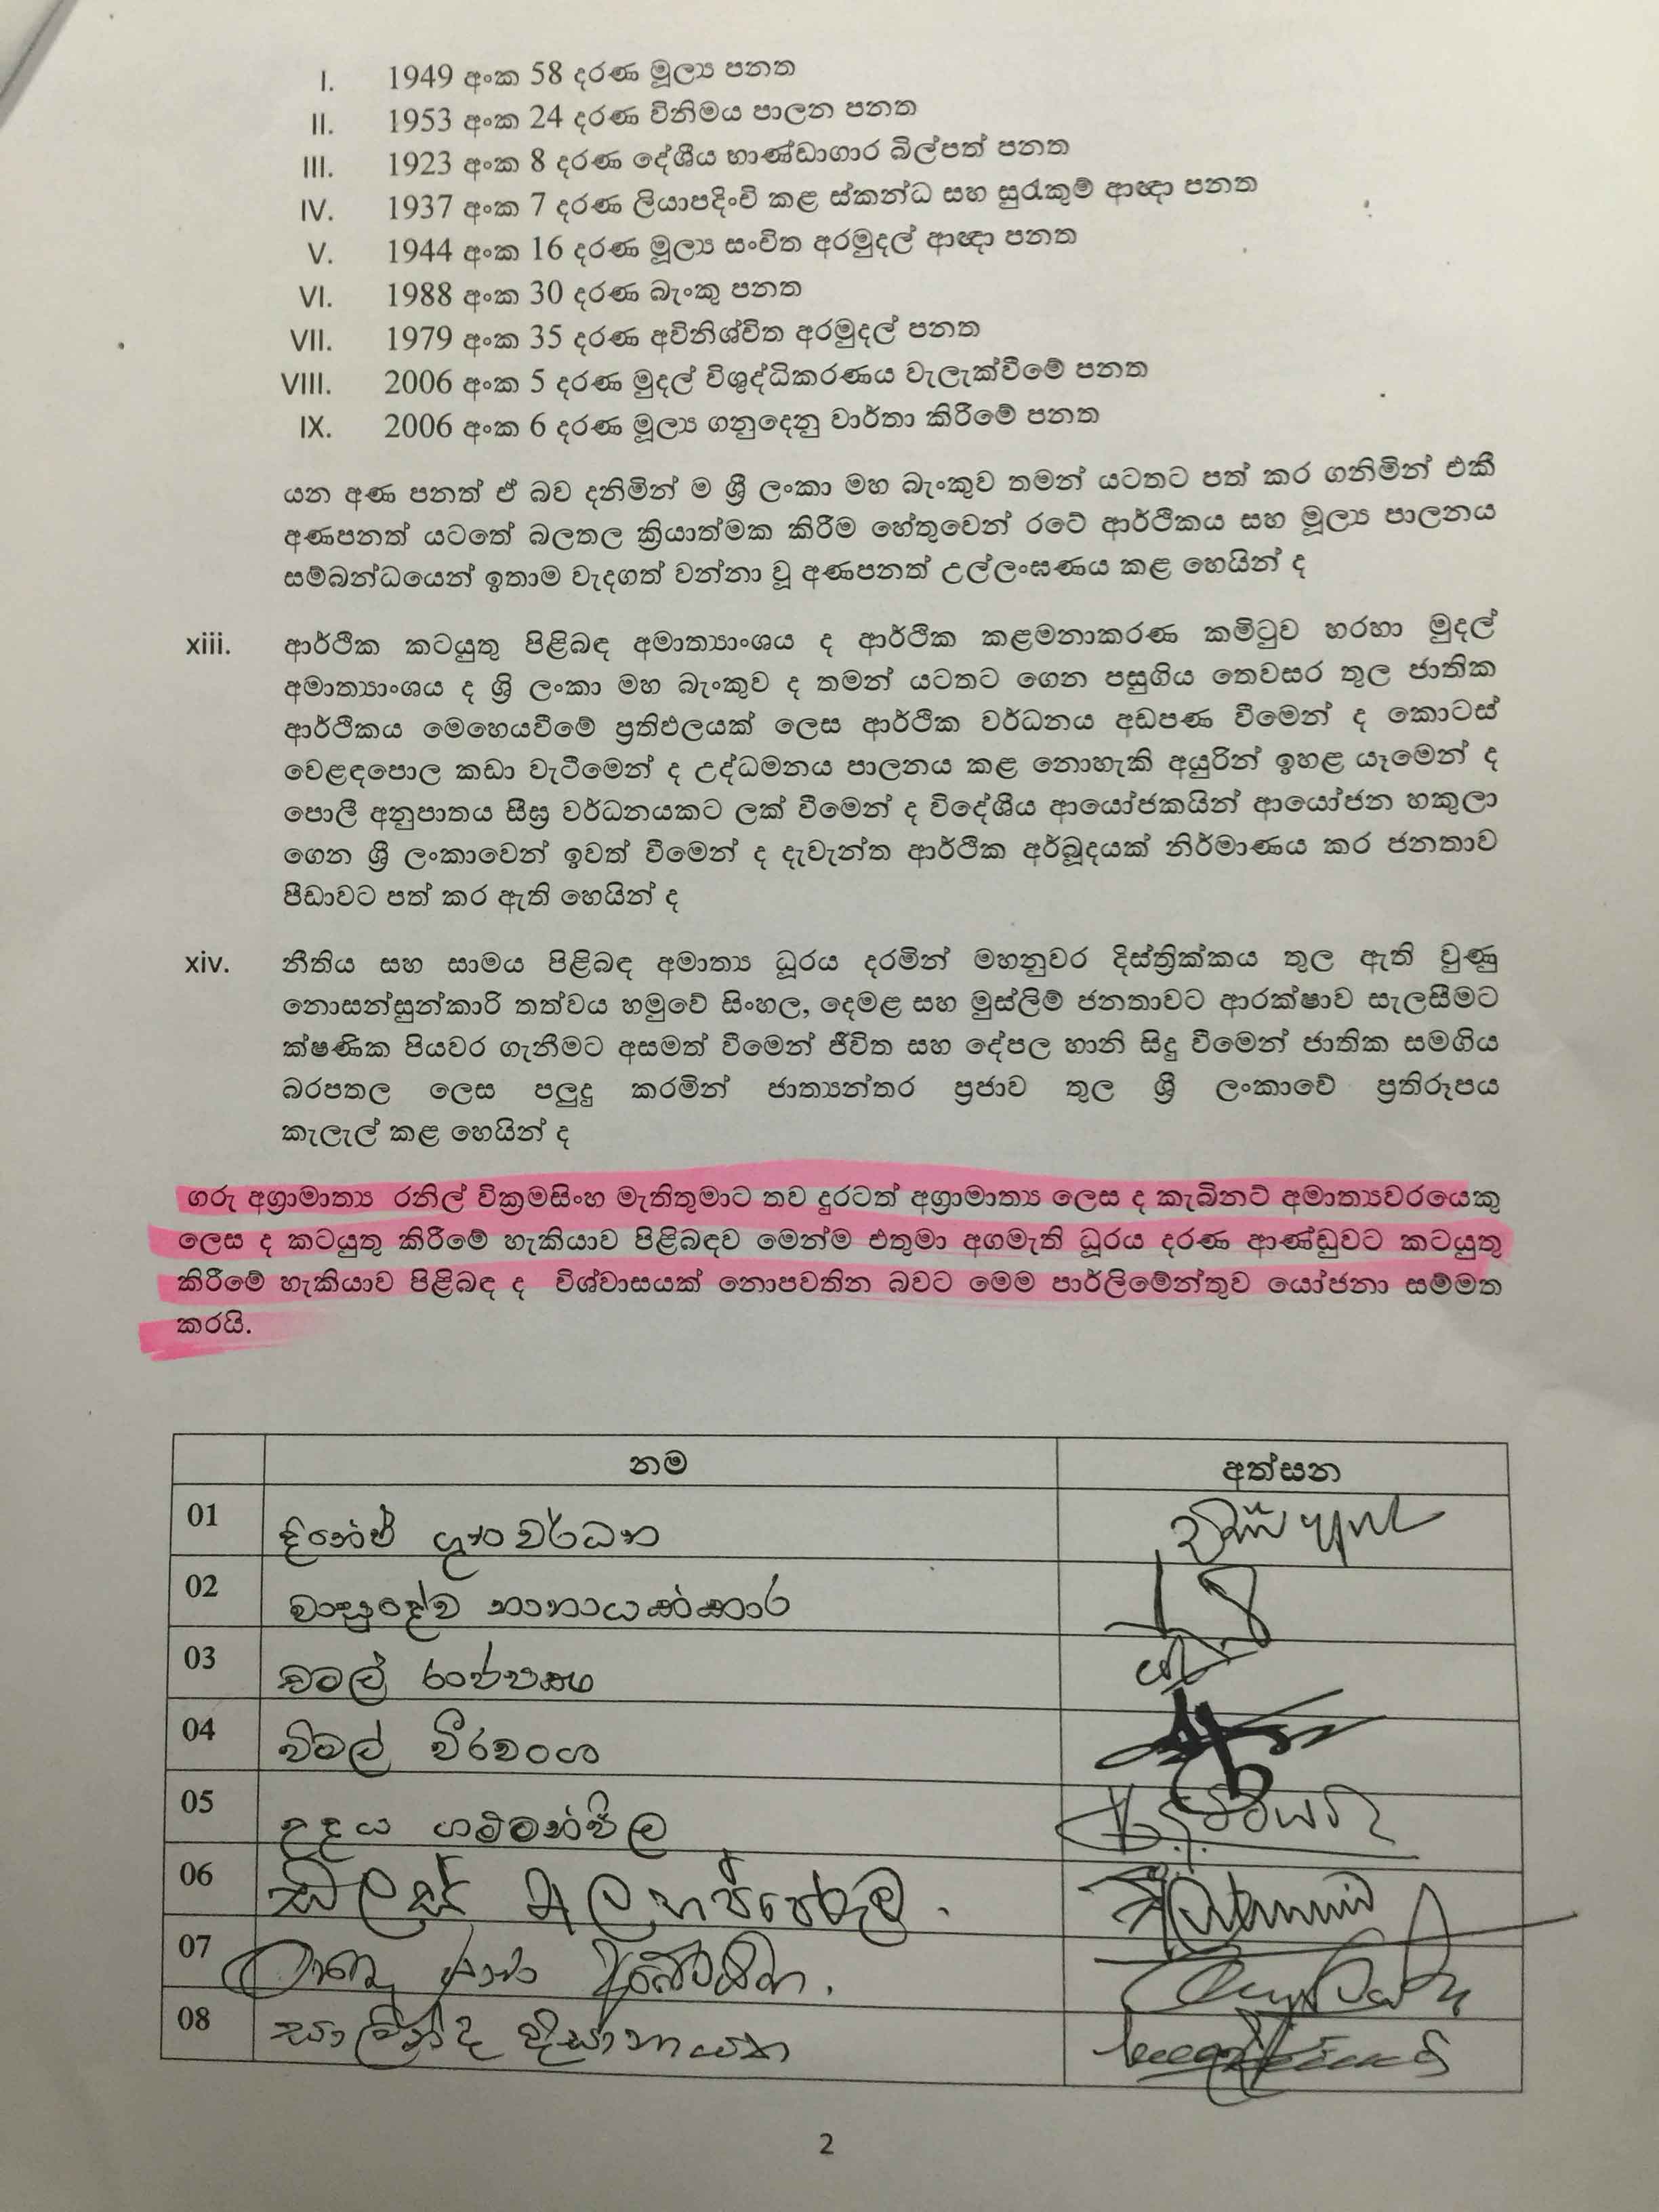 I. 1949 අංක 58 දරණ මූල්‍ය පනත
II. 1953 අංක 24 දරණ විනිමය පාලන පනත
III. 1923 අංක 8 දරණ දේශීය භාණ්ඩාගාර බිල්පත් පනත
IV. 1937 අංක 7 දරණ ලියාපදිංචි කළ ස්කන්ධ සහ සුරැකුම් ආඥා පනත
V. 1944 අංක 16 දරණ මූල්‍ය සංචිත අරමුදල් ආඥා පනත
VI. 1988 අංක 30 දරණ බැංකු පනත
VII. 1979 අංක 35 දරණ අවිනිශ්චිත අරමුදල් පනත
VIII. 2006 අංක 5 දරණ මුදල් විශුද්ධිකරණය වැලැක්වීමේ පනත
IX. 2006 අංක 6 දරණ මූල්‍ය ගනුදෙනු වාර්තා කිරීමේ පනත
යන අණ පනත් ඒ බව දනිමින් ම ශ්‍රී ලංකා මහ බැංකුව තමන් යටතට පත් කර ගනිමින් එකී
අණපනත් යටතේ බලතල ක්‍රියාත්මක කිරීම හේතුවෙන් රටේ ආර්ථිකය සහ මූල්‍ය පාලනය
සම්බන්ධයෙන් ඉතාම වැදගත් වන්නා වූ අණපනත් උල්ලංඝණය කළ හෙයින් ද
xiii. ආර්ථික කටයුතු පිළිබඳ අමාත්‍යාංශය ද ආර්ථික කළමනාකරණ කමිටුව හරහා මුදල්
අමාත්‍යාංශය ද ශ්‍රි ලංකා මහ බැංකුව ද තමන් යටතට ගෙන පසුගිය තෙවසර තුල ජාතික
ආර්ථිකය මෙහෙයවීමේ ප්‍රතිඵලයක් ලෙස ආර්ථික වර්ධනය අඩපණ වීමෙන් ද කොටස්
වෙළඳපොල කඩා වැටීමෙන් ද උද්ධමනය පාලනය කළ නොහැකි අයුරින් ඉහළ යෑමෙන් ද
පොලී අනුපාතය සීඝ්‍ර වර්ධනයකට ලක් වීමෙන් ද විදේශීය ආයෝජකයින් ආයෝජන හකුලා
ගෙන ශ්‍රී ලංකාවෙන් ඉවත් වීමෙන් ද දැවැන්ත ආර්ථික අර්බූදයක් නිර්මාණය කර ජනතාව
පීඩාවට පත් කර ඇති හෙයින් ද
xiv. නීතිය සහ සාමය පිළිබඳ අමාත්‍ය ධූරය දරමින් මහනුවර දිස්ත්‍රික්කය තුල ඇති වුණු
නොසන්සුන්කාරි තත්වය හමුවේ සිංහල, දෙමළ සහ මුස්ලිම් ජනතාවට ආරක්ෂාව සැලසීමට
ක්ෂණික පියවර ගැනීමට අසමත් වීමෙන් ජීවිත සහ දේපල හානි සිදු වීමෙන් ජාතික සමගිය
බරපතල ලෙස පලුදු කරමින් ජාත්‍යන්තර ප්‍රජාව තුල ශ්‍රී ලංකාවේ ප්‍රතිරූපය
කැලැල් කළ හෙයින් ද
ගරු අග්‍රාමාත්‍ය රනිල් වික්‍රමසිංහ මැතිතුමාට තව දුරටත් අග්‍රාමාත්‍ය ලෙස ද කැබිනට් අමාත්‍යවරයෙකු
ලෙස ද කටයුතු කිරීමේ හැකියාව පිළිබඳව මෙන්ම එතුමා අගමැති ධූරය දරණ ආණ්ඩුවට කටයුතු
කිරීමේ හැකියාව පිළිබඳ ද විශ්වාසයක් නොපවතින බවට මෙම පාර්ලිමේන්තුව යෝජනා සම්මත
කරයි.
නම අත්සන
01 දිනේෂ් ගුණවර්ධන
02 වාසුදේව නානායක්කාර
03 චමල් රාජපක්ෂ
04 විමල් වීරවංශ
05 උදය ගම්මන්පිල
06 ඩලස් අලහප්පෙරුම
07
08 සාලින්ද දිසානායක
2